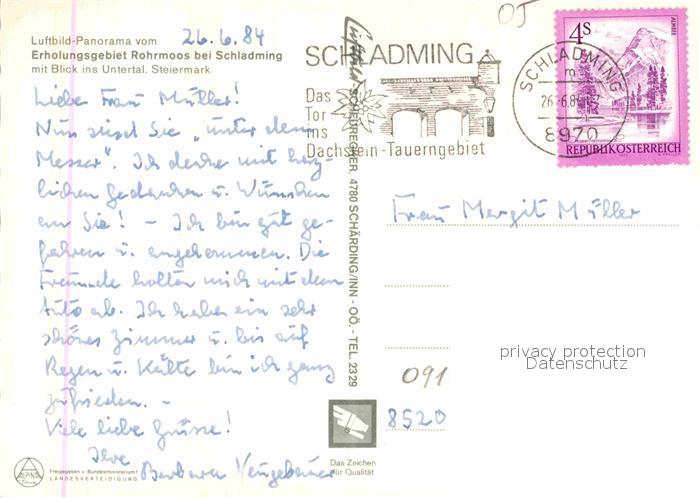 Luftbild-Panorama vom
26.6.84
Erholungsgebiet Rohrmoos bei Schladming
mit Blick ins Untertal. Steiermark
Liebe Frau Müller!
Nun sind Sie „unter dem
Messer". Ich denke mit herz-
lichen Gedanken u. Wünschen
an Sie! – Ich bin gut ge-
fahren u. angekommen. Die
Freunde holten mich mit dem
Auto ab. Ich habe ein sehr
schönes Zimmer u. bis auf
Regen u. Kälte bin ich ganz
zufrieden. –
Viele liebe Grüsse!
Ihre
Barbara Neugebauer
ALPINE
Freigegeben v. Bundesministerium f.
LANDESVERTEIDIGUNG
Luftbild
SCHEURECHER, 4780 SCHÄRDING/INN - OÖ. - TEL. 2329
Das Zeichen
für Qualität
SCHLADMING
Das
Tor
ins
Dachstein-Tauerngebiet
SCHLADMING
26.6.84
8970
4S
ALMSEE
REPUBLIK ÖSTERREICH
Frau Margit Müller
privacy protection
Datenschutz
091
8520